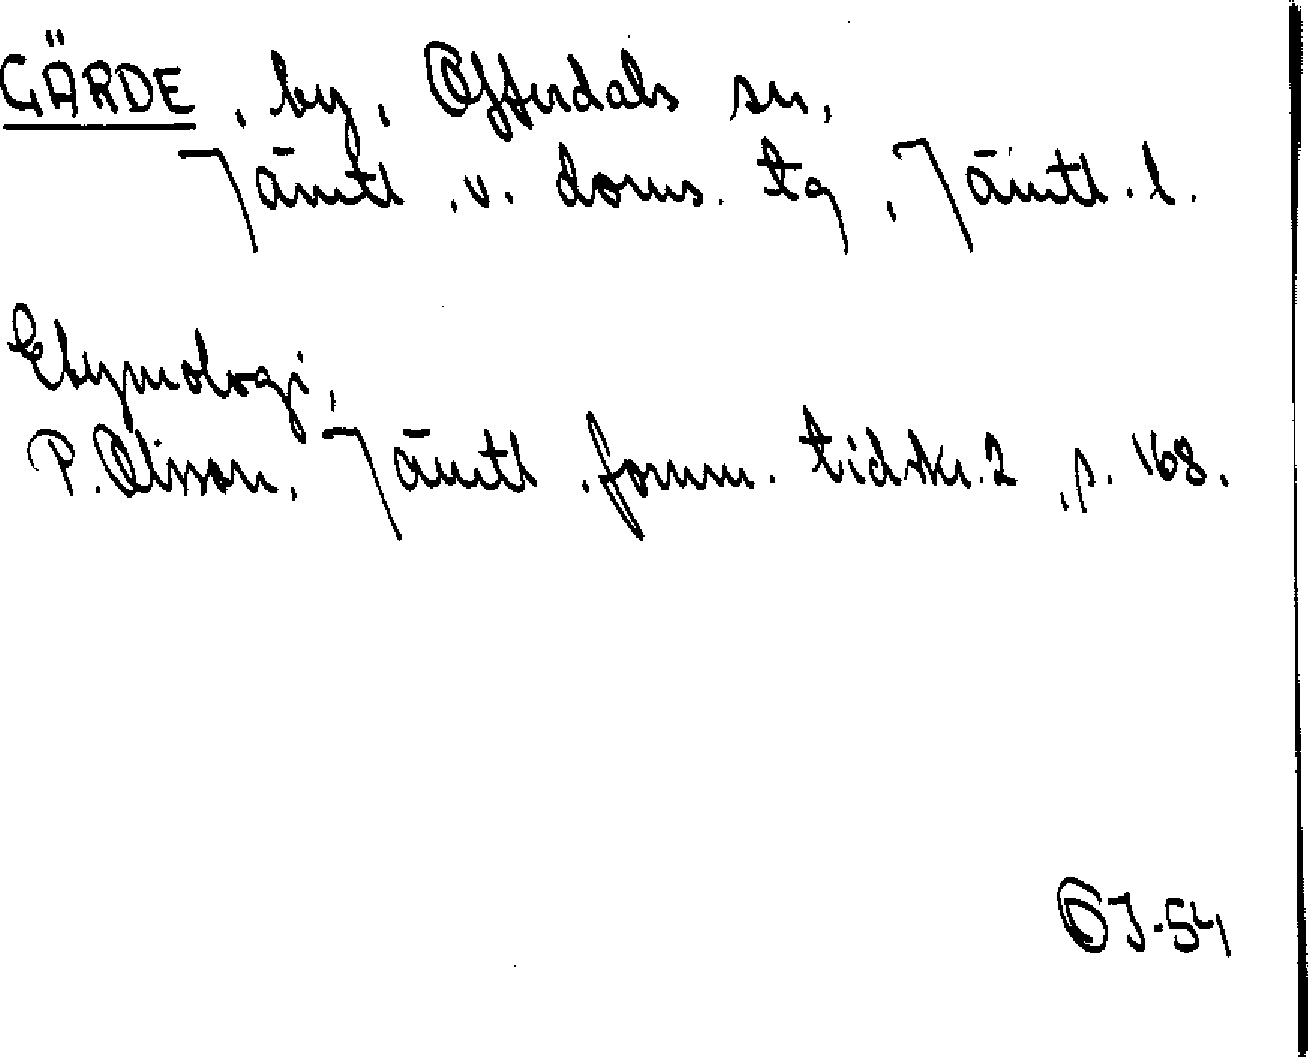 GÄRDE, by, Offerdals sn,
Jämtl. v. doms. tg, Jämtl. l.
Etymologi,
P. Olsson, Jämtl. fornm. tidskr. 2, s. 168.
OJ-54